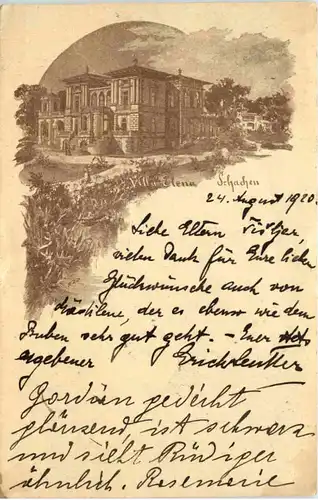 Villa Elena Schachen
24. August 1920.
Liebe Eltern
vielen Dank für Eure lieben
Glückwünsche auch von
der es ebenso wie dem
Buben sehr gut geht. – Euer stets
ergebener
gedeiht
glänzend, ist schwarz
und sieht Rüdiger
ähnlich. Rosemerie